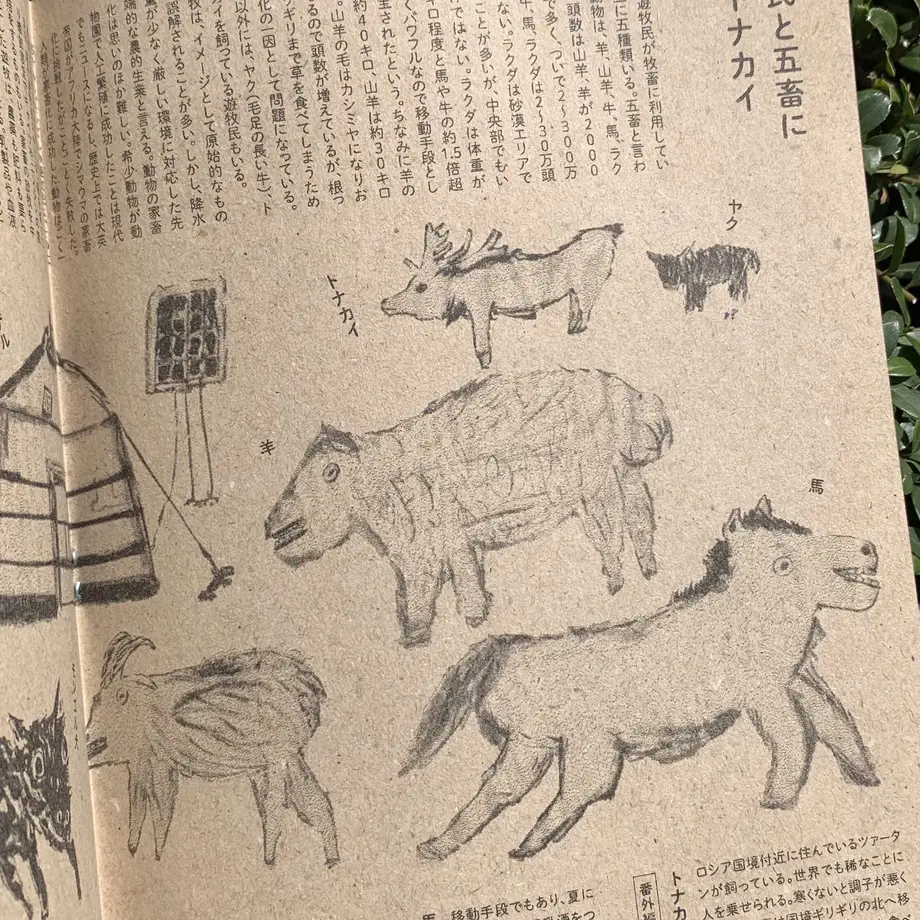 民と五畜に
トナカイ
遊牧民が牧畜に利用してい
に五種類いる。五畜と言わ
動物は、羊、山羊、牛、馬、ラク
頭数は山羊、羊が2000
で多く、ついで2〜300万
牛、馬、ラクダは2〜30万頭
ない。ラクダは砂漠エリアで
ことが多いが、中央部でもい
ではない。ラクダは体重が
キロ程度と馬や牛の約1.5倍超
くパワフルなので移動手段とし
宝されたという。ちなみに羊の
約40キロ、山羊は約30キロ
。山羊の毛はカシミヤになりお
るので頭数が増えているが、根っ
ギリギリまで草を食べてしまうため
化の一因として問題になっている。
以外には、ヤク(毛足の長い牛)、ト
イを飼っている遊牧民もいる。
牧は、イメージとして原始的なもの
誤解されることが多い。しかし、降水
が少なく厳しい環境に対応した先
端的な農的生業と言える。動物の家畜
化は思いのほか難しい。希少動物が動
物園で人工繁殖に成功したことは現代
でもニュースになるし、歴史上では大英
帝国がアフリカ大陸でシマウマの家畜
化に挑戦したがことごとく失敗した。
類が家畜化に成功した動物はごく
ヤク
トナカイ
羊
馬
ル
番外編
トナカ
ロシア国境付近に住んでいるツァータ
ンが飼っている。世界でも稀なことに
人を乗せられる。寒くないと調子が悪く
は国境ギリギリの北へ移
馬
移動手段でもあり、夏に
乳酒をつ